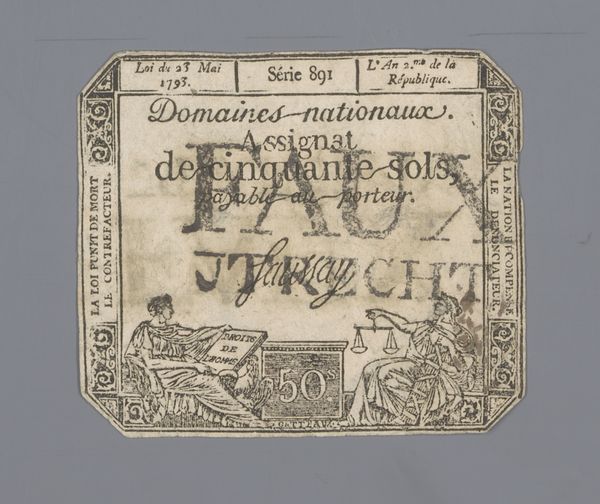 Loi du 23 Mai
1793.
Série 891
L'An 2.me de la
République.
Domaines nationaux.
Assignat
de cinquante sols,
payable au porteur.
FAUX
UTRECHT
Saussay
LA LOI PUNIT DE MORT
LE CONTREFACTEUR.
LA NATION RÉCOMPENSE
LE DÉNONCIATEUR.
DROITS
DE
L'HOMME
50s